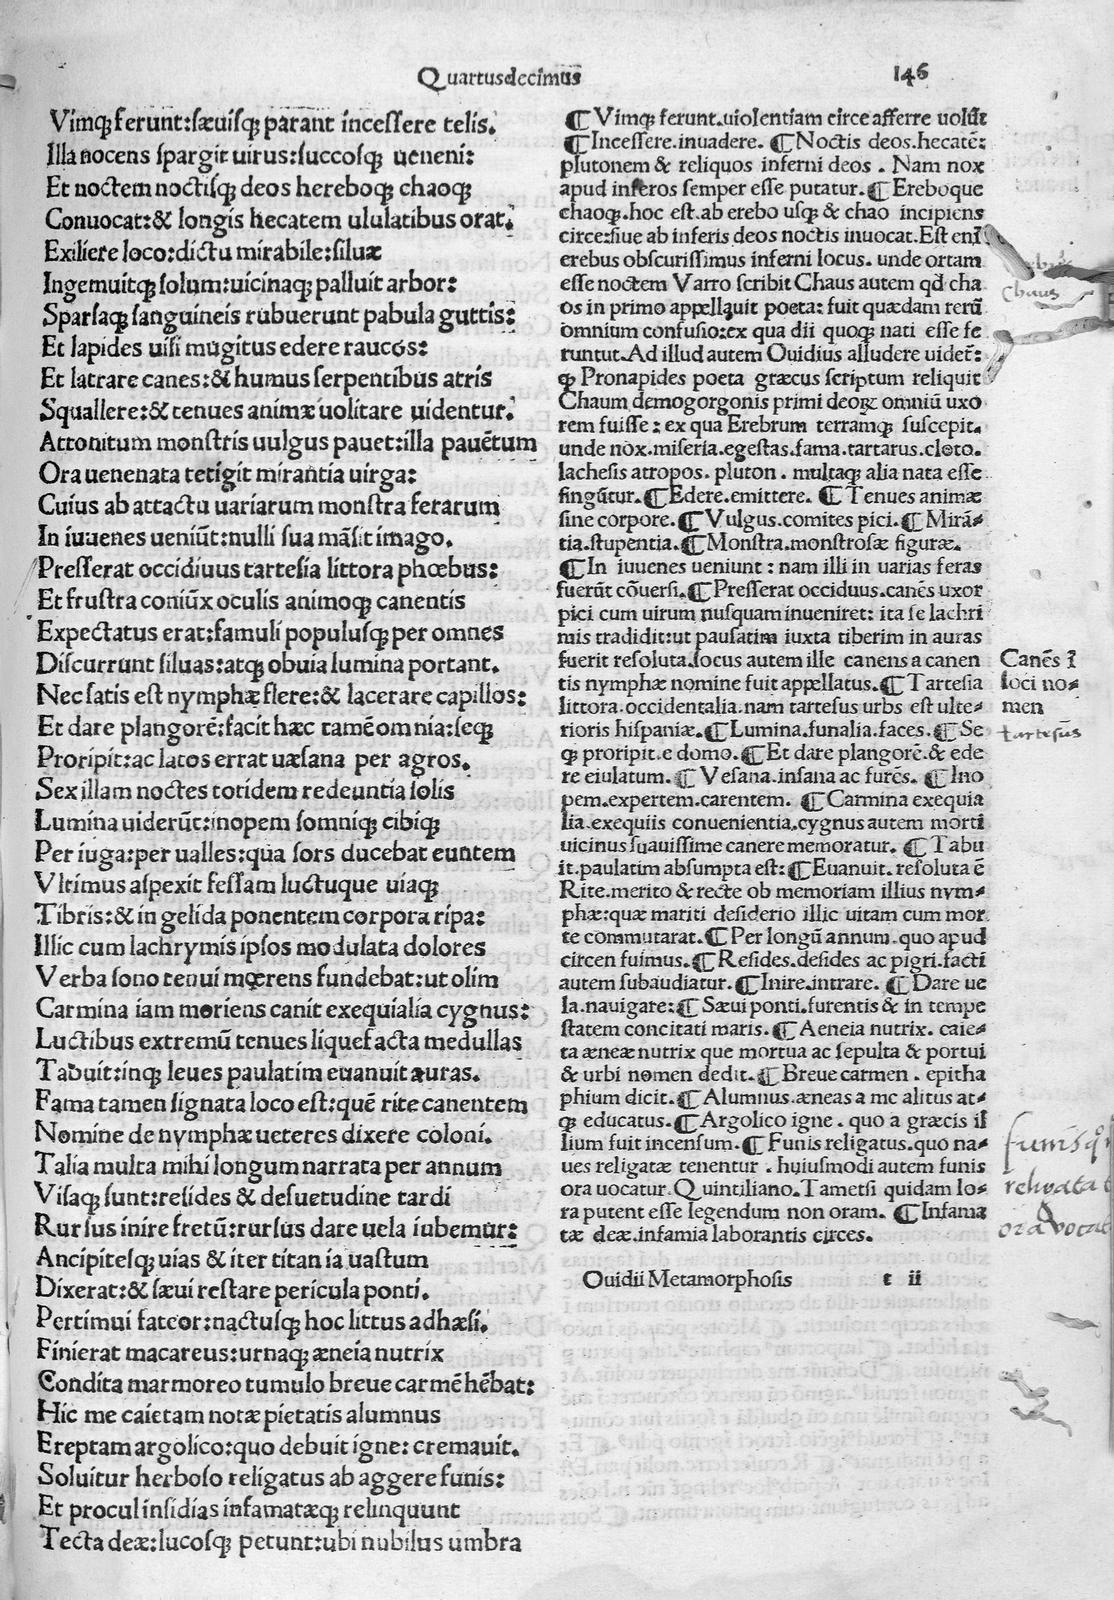 Quartusdecimus
146
Vimq; ferunt:sæuisq; parant incessere telis.
Illa nocens spargit uirus:succosq; ueneni:
Et noctem noctisq; deos hereboq; chaoq;
Conuocat:& longis hecatem ululatibus orat.
Exiliere loco:dictu mirabile:siluæ
Ingemuitq; solum:uicinaq; palluit arbor:
Sparsaq; sanguineis rubuerunt pabula guttis:
Et lapides uisi mugitus edere raucos:
Et latrare canes:& humus serpentibus atris
Squallere:& tenues animæ uolitare uidentur.
Attonitum monstris uulgus pauet:illa pauẽtum
Ora uenenata tetigit mirantia uirga:
Cuius ab attactu uariarum monstra ferarum
In iuuenes ueniũt:nulli sua mãsit imago.
Presserat occiduus tartesia littora phœbus:
Et frustra coniũx oculis animoq; canentis
Expectatus erat:famuli populusq; per omnes
Discurrunt siluas:atq; obuia lumina portant.
Nec satis est nymphæ flere:& lacerare capillos:
Et dare plangorẽ:facit hæc tamẽ omnia:seq;
Proripit:ac latos errat uæsana per agros.
Sex illam noctes totidem redeuntia solis
Lumina uiderũt:inopem somniq; cibiq;
Per iuga:per ualles:qua sors ducebat euntem
Vltimus aspexit fessam luctuque uiaq;
Tibris:& in gelida ponentem corpora ripa:
Illic cum lachrymis ipsos modulata dolores
Verba sono tenui mœrens fundebat:ut olim
Carmina iam moriens canit exequialia cygnus:
Luctibus extremũ tenues liquefacta medullas
Tabuit:inq; leues paulatim euanuit auras.
Fama tamen signata loco est:quẽ rite canentem
Nomine de nymphæ ueteres dixere coloni.
Talia multa mihi longum narrata per annum
Visaq; sunt:resides & desuetudine tardi
Rursus inire fretũ:rursus dare uela iubemur:
Ancipitesq; uias & iter titania uastum
Dixerat:& sæui restare pericula ponti.
Pertimui fateor:nactusq; hoc littus adhæsi.
Finierat macareus:urnaq; æneia nutrix
Condita marmoreo tumulo breue carmẽ hẽbat:
Hic me caietam notæ pietatis alumnus
Ereptam argolico:quo debuit igne: cremauit.
Soluitur herboso religatus ab aggere funis:
Et procul insidias infamatæq; relinquunt
Tecta deæ:lucosq; petunt:ubi nubilus umbra
¶ Vimq; ferunt.uiolentiam circe afferre uolũt
¶ Incessere.inuadere. ¶ Noctis deos.hecatẽ:
plutonem & reliquos inferni deos . Nam nox
apud inferos semper esse putatur. ¶ Ereboque
chaoq;.hoc est.ab erebo usq; & chao incipiens
circe:siue ab inferis deos noctis inuocat.Est enĩ
erebus obscurissimus inferni locus. unde ortam
esse noctem Varro scribit Chaus autem qd cha
os in primo appellauit poeta: fuit quædam rerũ
omnium confusio:ex qua dii quoq; nati esse fe
runtur.Ad illud autem Ouidius alludere uidet̃:
q; Pronapides poeta græcus scriptum reliquit
Chaum demogorgonis primi deoꝝ omniũ uxo
rem fuisse : ex qua Erebrum terramq; suscepit.
unde nox.miseria.egestas.fama.tartarus.cloto.
lachesis atropos. pluton . multaq; alia nata esse
fingũtur. ¶ Edere.emittere. ¶ Tenues animæ
sine corpore. ¶ Vulgus.comites pici. ¶ Mirã-
tia.stupentia. ¶ Monstra.monstrosæ figuræ.
¶ In iuuenes ueniunt : nam illi in uarias feras
fuerũt cõuersi. ¶ Presserat occiduus.canẽs uxor
pici cum uirum nusquam inueniret: ita se lachri
mis tradidit:ut paulatim iuxta tiberim in auras
fuerit resoluta.locus autem ille canens a canen
tis nymphæ nomine fuit appellatus. ¶ Tartesia
littora.occidentalia.nam tartesus urbs est ulte-
rioris hispaniæ. ¶ Lumina.funalia.faces. ¶ Se
q; proripit.e domo. ¶ Et dare plangorẽ.& ede
re eiulatum. ¶ Vesana.insana ac furẽs. ¶ Ino
pem.expertem.carentem. ¶ Carmina exequia
lia.exequiis conuenientia.cygnus autem morti
uicinus suauissime canere memoratur. ¶ Tabu
it.paulatim absumpta est: ¶ Euanuit. resoluta ẽ
Rite.merito & recte ob memoriam illius nym-
phæ:quæ mariti desiderio illic uitam cum mor
te commutarat. ¶ Per longũ annum.quo apud
circen fuimus. ¶ Resides.desides ac pigri.facti
autem subaudiatur. ¶ Inire.intrare. ¶ Dare ue
la.nauigare: ¶ Sæui ponti.furentis & in tempe
statem concitati maris. ¶ Aeneia nutrix. caie-
ta æneæ nutrix que mortua ac sepulta & portui
& urbi nomen dedit. ¶ Breue carmen . epitha
phium dicit. ¶ Alumnus.æneas a me alitus at-
q; educatus. ¶ Argolico igne . quo a græcis il
lium fuit incensum. ¶ Funis religatus.quo na-
ues religatæ tenentur . huiusmodi autem funis
ora uocatur.Quintiliano.Tametsi quidam lo-
ra putent esse legendum non oram. ¶ Infama
tæ deæ.infamia laborantis circes.
Chaus
Canẽs ĩ
loci no-
men
tartesus
funisq
ora vocat
Ouidii Metamorphosis t ii